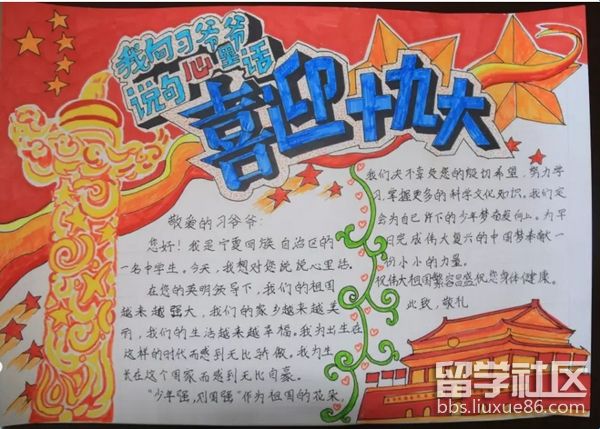 我向习爷爷
说句心里话
喜迎十九大
敬爱的习爷爷：
您好！我是宁夏回族自治区的
一名中学生。今天，我想对您说说心里话。
在您的英明领导下，我们的祖国
越来越强大，我们的家乡越来越美
丽，我们的生活越来越幸福。我为出生在
这样的时代而感到无比骄傲。我为生
长在这个国家而感到无比自豪。
“少年强，则国强”作为祖国的花朵，
我们决不辜负您的殷切希望，努力学
习，掌握更多的科学文化知识。我们定
会为自己许下的少年梦奋发向上。为早
日完成伟大复兴的中国梦奉献一
份小小的力量。
祝伟大祖国繁容昌盛祝您身体健康。
此致，敬礼
留学社区
bbs.liuxue86.com